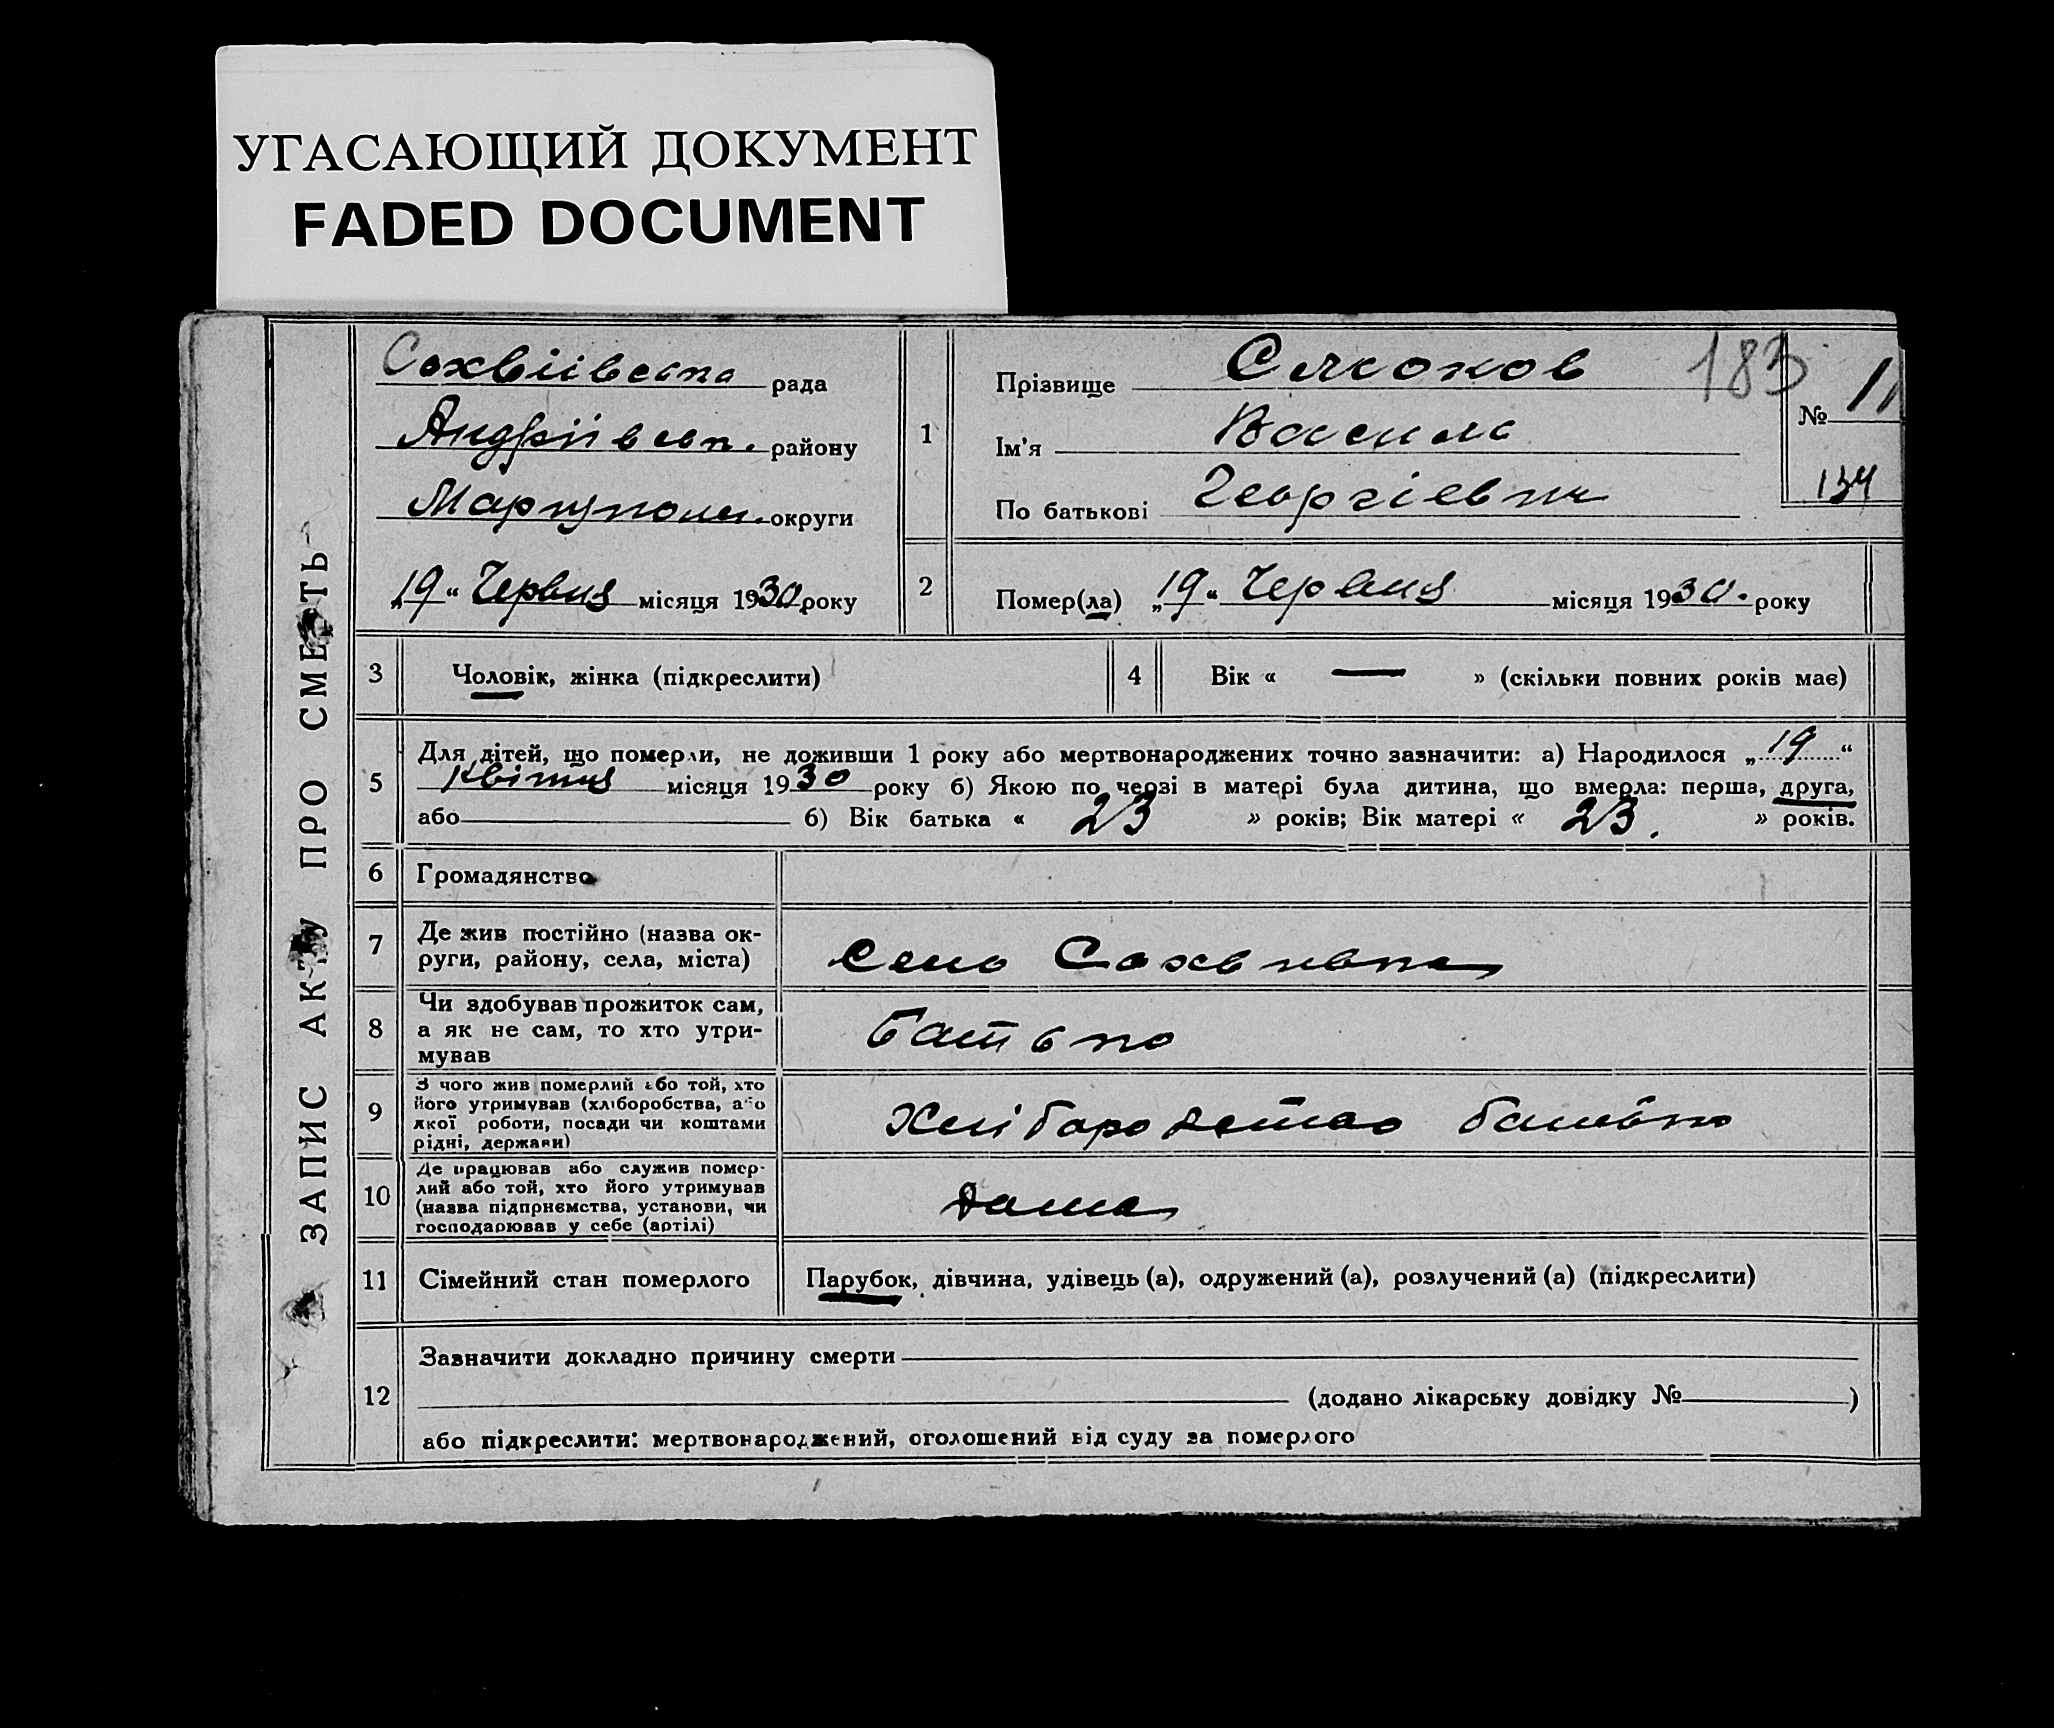 УГАСАЮЩИЙ ДОКУМЕНТ
FADED DOCUMENT
ЗАПИС АКТУ ПРО СМЕРТЬ
Сохвіівська рада
Андріівськ. району
Маріупольс. округи
„19“ Червня місяця 1930 року
1
Прізвище
Ім'я Василь
По батькові Георгіевич
183
№ 11
134
2
Помер(ла) „19“ Червня місяця 1930. року
3
Чоловік, жінка (підкреслити)
4
Вік « — » (скільки повних років має)
5
Для дітей, що померли, не доживши 1 року або мертвонароджених точно зазначити: а) Народилося „19“
Квітня місяця 1930 року б) Якою по черзі в матері була дитина, що вмерла: перша, друга,
або б) Вік батька « 23 » років; Вік матері « 23. » років.
6
Громадянство
7
Де жив постійно (назва ок-
руги, району, села, міста)
село
8
Чи здобував прожиток сам,
а як не сам, то хто утри-
мував
батько
9
З чого жив померлий або той, хто
його утримував (хліборобства, або
якої роботи, посади чи коштами
рідні, держави)
батько
10
Де працював або служив помер-
лий або той, хто його утримував
(назва підприємства, установи, чи
господарював у себе (артілі)
дома
11
Сімейний стан померлого
Парубок, дівчина, удівець (а), одружений (а), розлучений (а) (підкреслити)
12
Зазначити докладно причину смерти
(додано лікарську довідку № )
або підкреслити: мертвонароджений, оголошений від суду за померлого